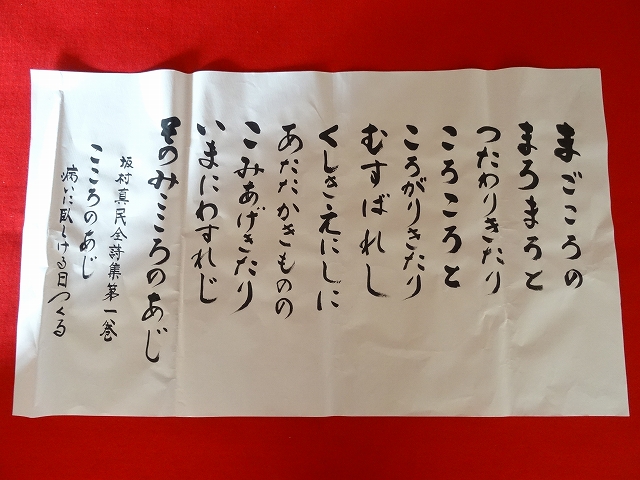 まごころの
まろまろと
つたわりきたり
ころころと
ころがりきたり
むすばれし
くしきえにしに
あたたかきものの
こみあげきたり
いまにわすれじ
そのみこころのあじ
坂村真民全詩集第一巻
こころのあじ
病いに臥しける日つくる